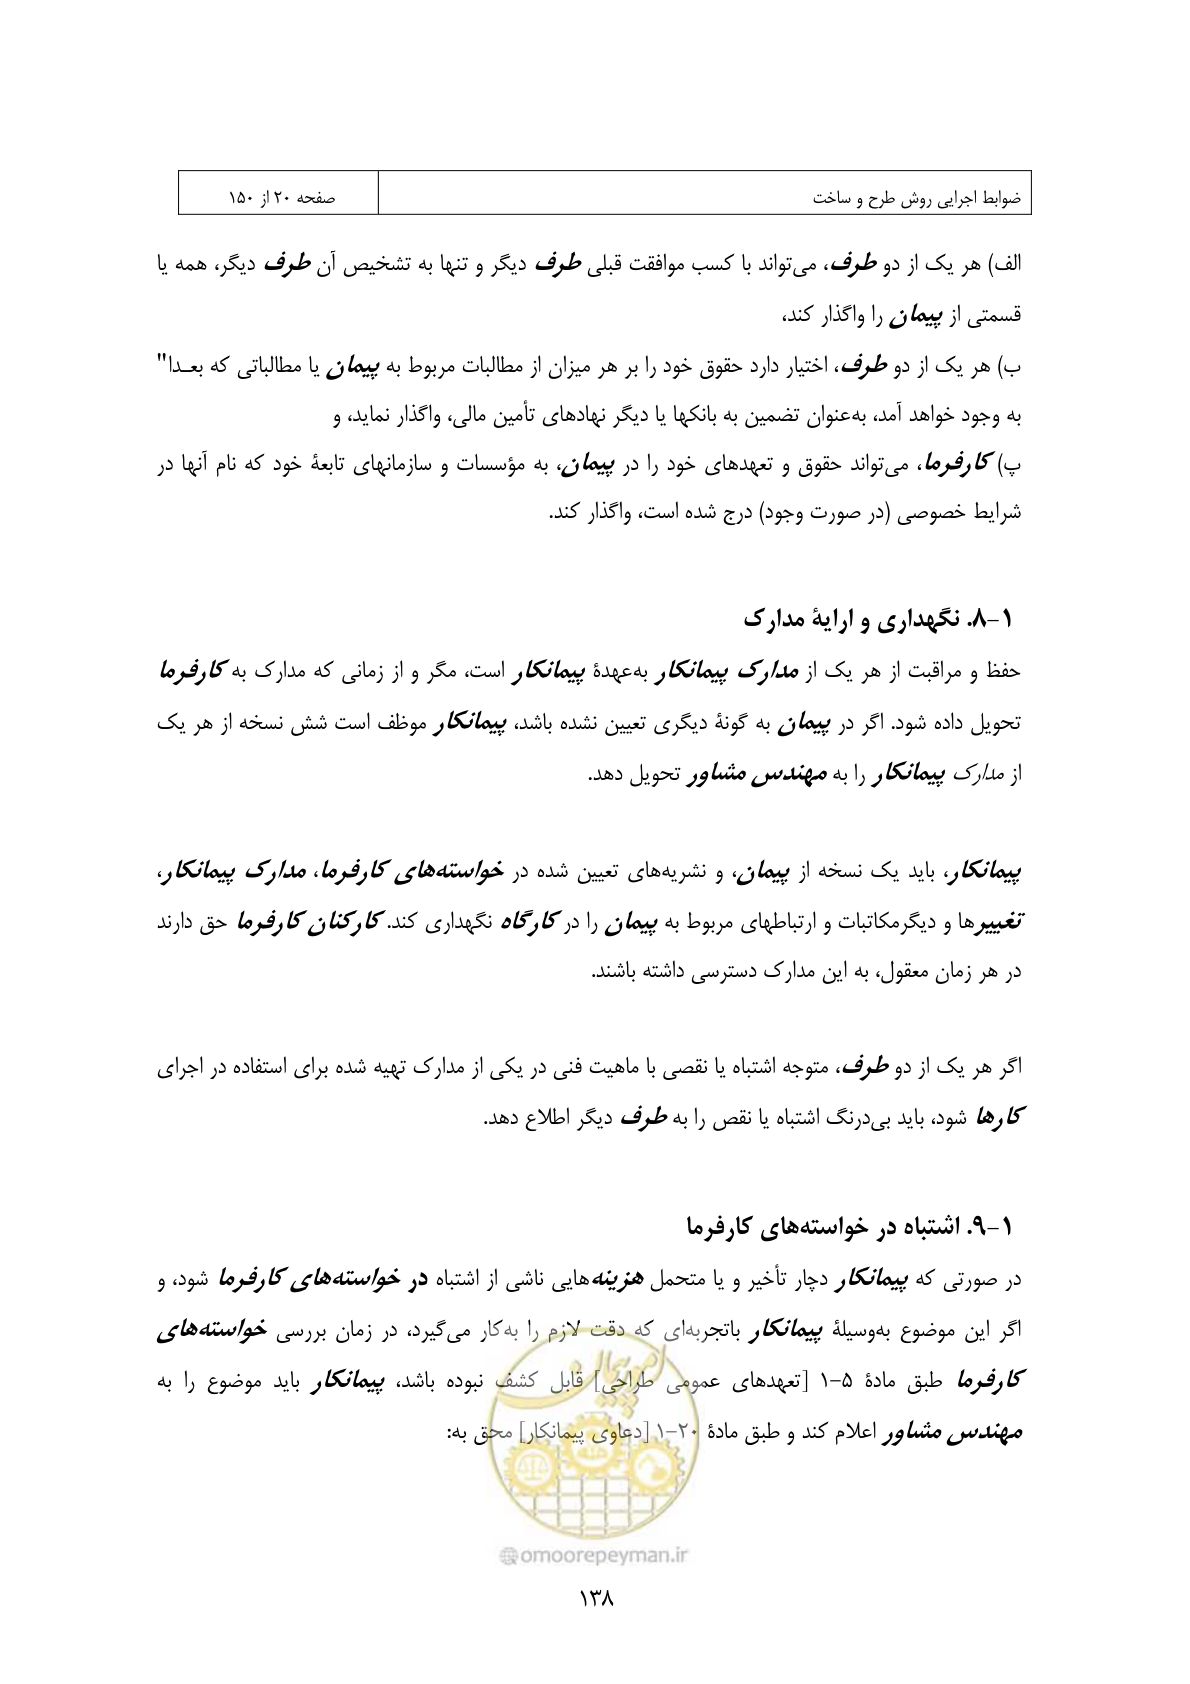 ضوابط اجرایی روش طرح و ساخت
صفحه ۲۰ از ۱۵۰
الف) هر یک از دو طرف، می‌تواند با کسب موافقت قبلی طرف دیگر و تنها به تشخیص آن طرف دیگر، همه یا
قسمتی از پیمان را واگذار کند،
ب) هر یک از دو طرف، اختیار دارد حقوق خود را بر هر میزان از مطالبات مربوط به پیمان یا مطالباتی که بعـدا"
به وجود خواهد آمد، به‌عنوان تضمین به بانکها یا دیگر نهادهای تأمین مالی، واگذار نماید، و
پ) کارفرما، می‌تواند حقوق و تعهدهای خود را در پیمان، به مؤسسات و سازمانهای تابعۀ خود که نام آنها در
شرایط خصوصی (در صورت وجود) درج شده است، واگذار کند.
۸-۱. نگهداری و ارایۀ مدارک
حفظ و مراقبت از هر یک از مدارک پیمانکار به‌عهدۀ پیمانکار است، مگر و از زمانی که مدارک به کارفرما
تحویل داده شود. اگر در پیمان به گونۀ دیگری تعیین نشده باشد، پیمانکار موظف است شش نسخه از هر یک
از مدارک پیمانکار را به مهندس مشاور تحویل دهد.
پیمانکار، باید یک نسخه از پیمان، و نشریه‌های تعیین شده در خواسته‌های کارفرما، مدارک پیمانکار،
تغییرها و دیگرمکاتبات و ارتباطهای مربوط به پیمان را در کارگاه نگهداری کند. کارکنان کارفرما حق دارند
در هر زمان معقول، به این مدارک دسترسی داشته باشند.
اگر هر یک از دو طرف، متوجه اشتباه یا نقصی با ماهیت فنی در یکی از مدارک تهیه شده برای استفاده در اجرای
کارها شود، باید بی‌درنگ اشتباه یا نقص را به طرف دیگر اطلاع دهد.
۹-۱. اشتباه در خواسته‌های کارفرما
در صورتی که پیمانکار دچار تأخیر و یا متحمل هزینه‌هایی ناشی از اشتباه در خواسته‌های کارفرما شود، و
اگر این موضوع به‌وسیلۀ پیمانکار باتجربه‌ای که دقت لازم را به‌کار می‌گیرد، در زمان بررسی خواسته‌های
کارفرما طبق مادۀ ۵-۱ [تعهدهای عمومی طراحی] قابل کشف نبوده باشد، پیمانکار باید موضوع را به
مهندس مشاور اعلام کند و طبق مادۀ ۲۰-۱ [دعاوی پیمانکار] محق به:
امور پیمان
@omoorepeyman.ir
۱۳۸